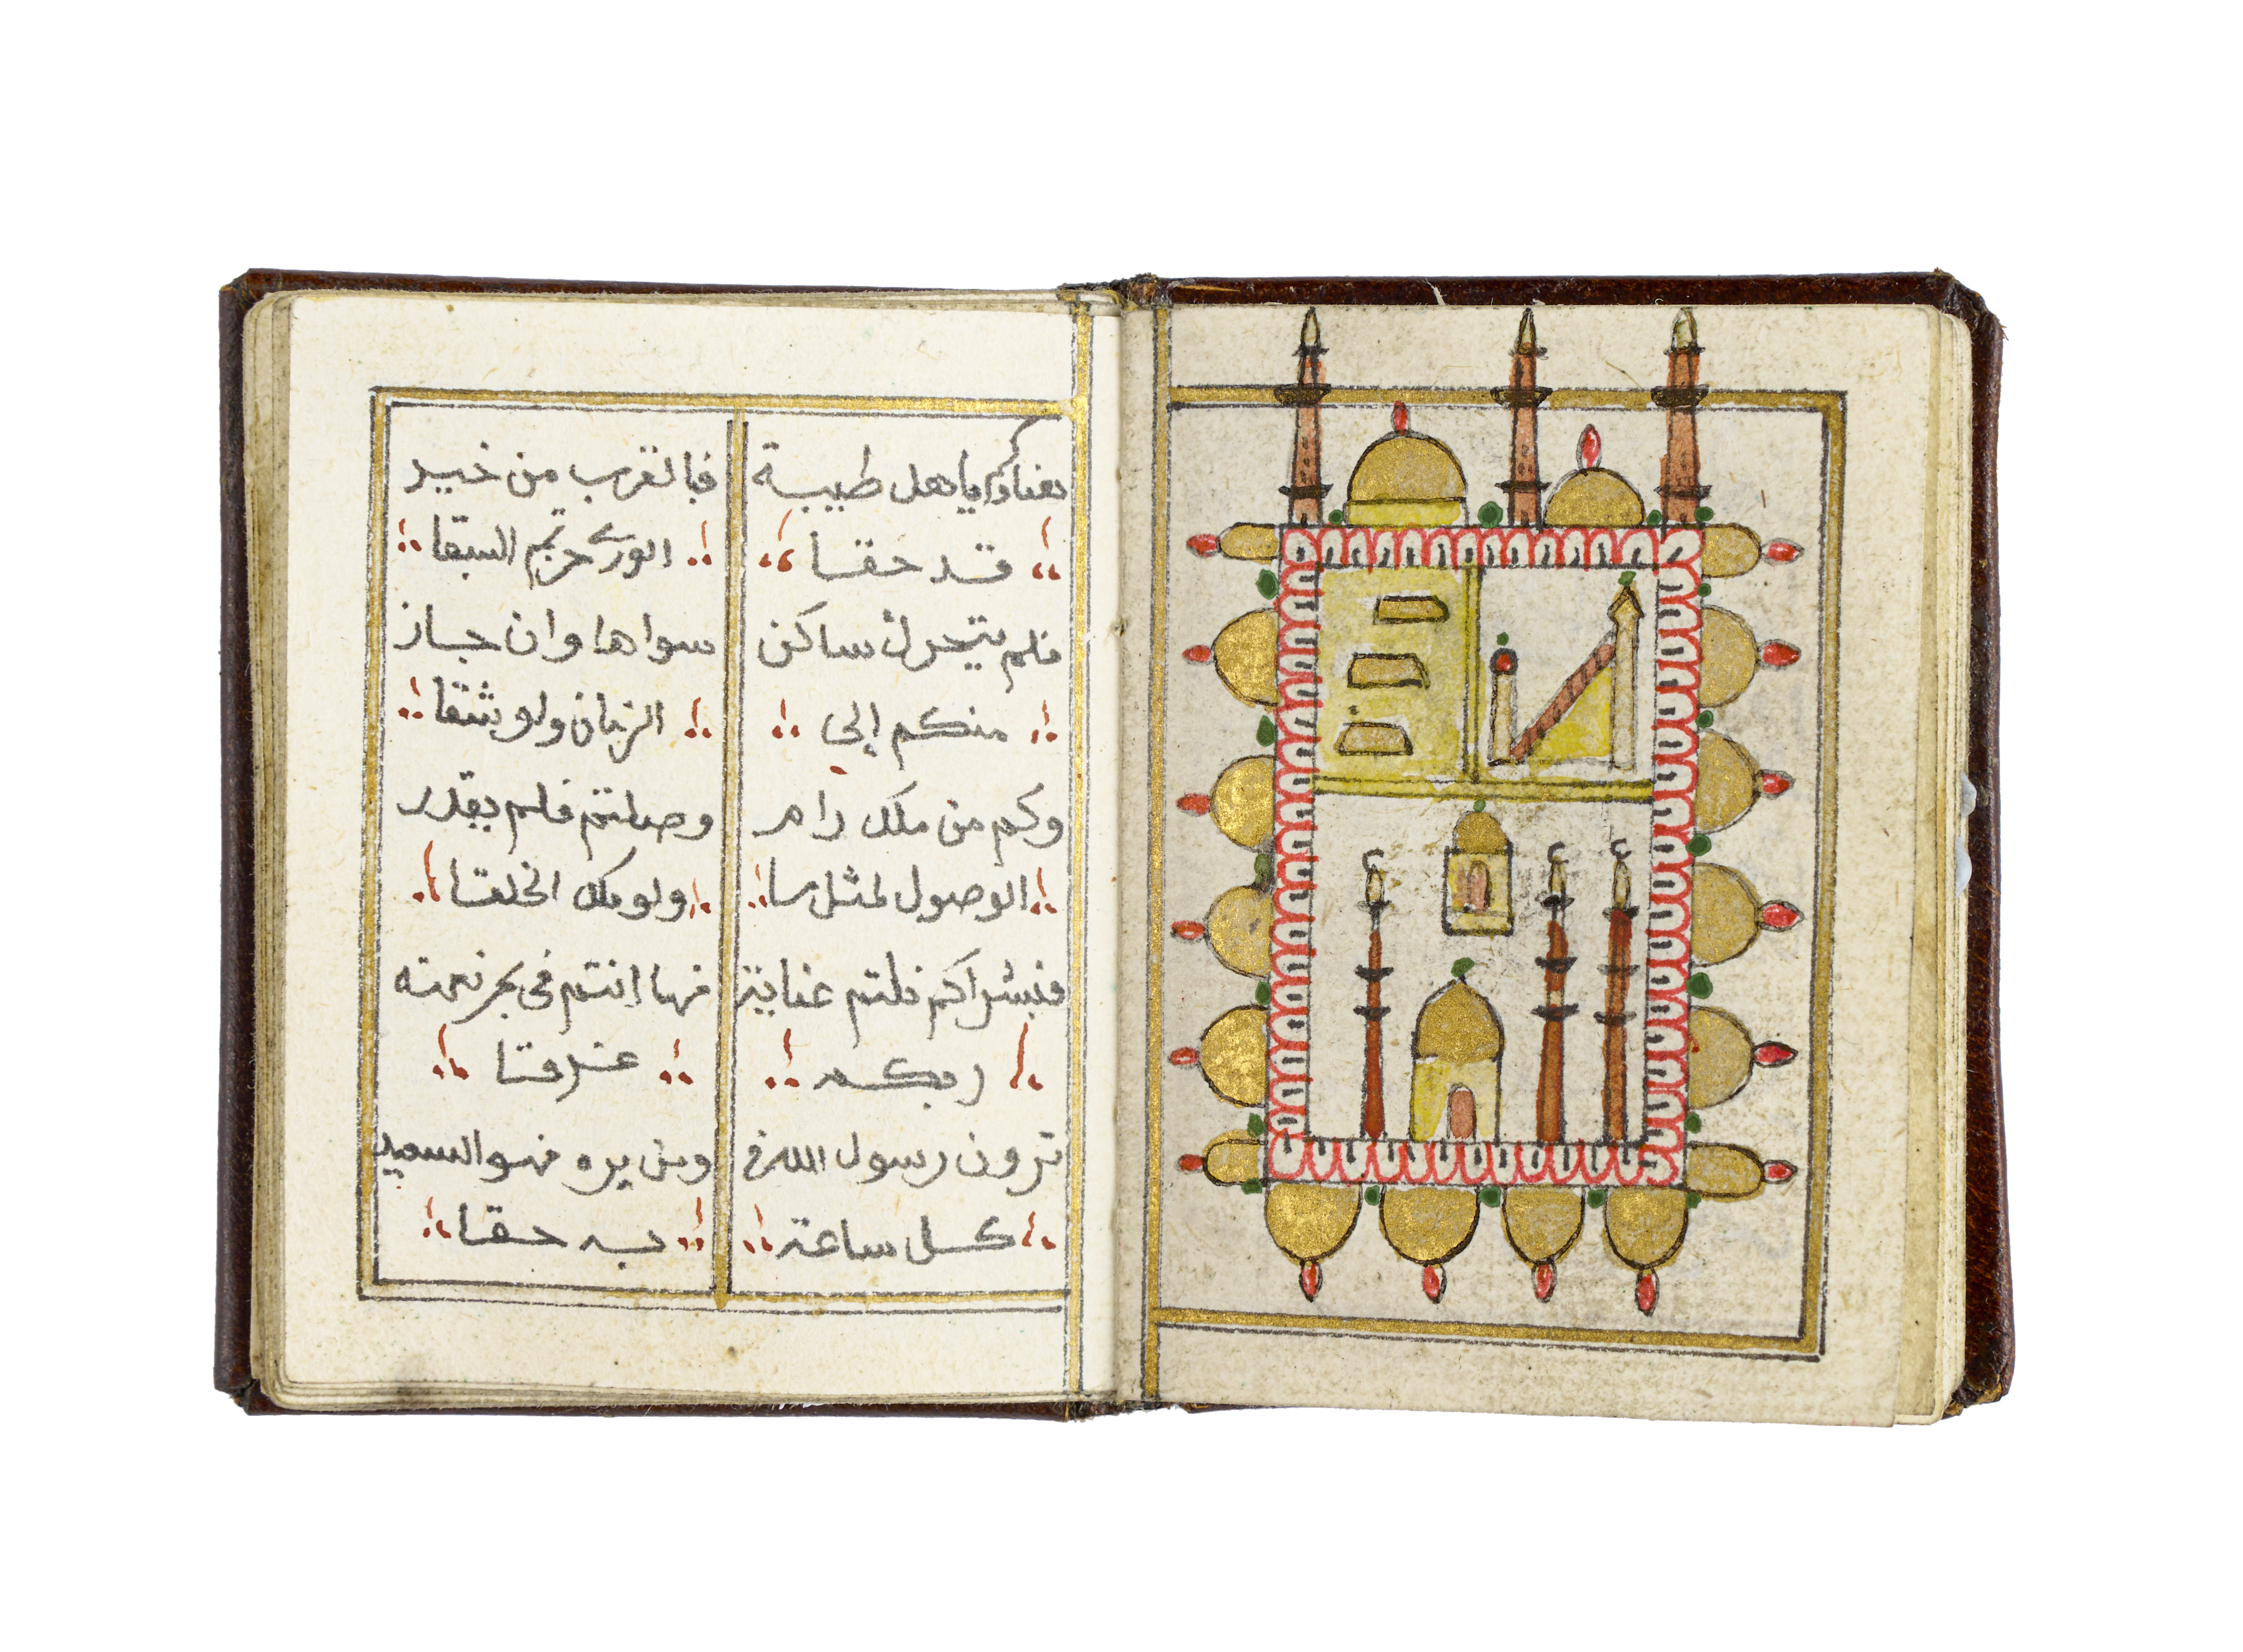 هناؤكم يا هل طيبة فبالقرب من خير
قد حقا الورى حزتم السبقا
فلم يتحرك ساكن سواها وان جار
منكم إلى الزمان ولو شقا
وكم من ملك رام وصلتم فلم يقدر
الوصول لمثل ما ولو ملك الخلقا
فبشراكم نلتم عناية فها انتم فى بحر نعمته
ربكم غرقا
ترون رسول الله في ومن يره فهو السعيد
كل ساعة به حقا